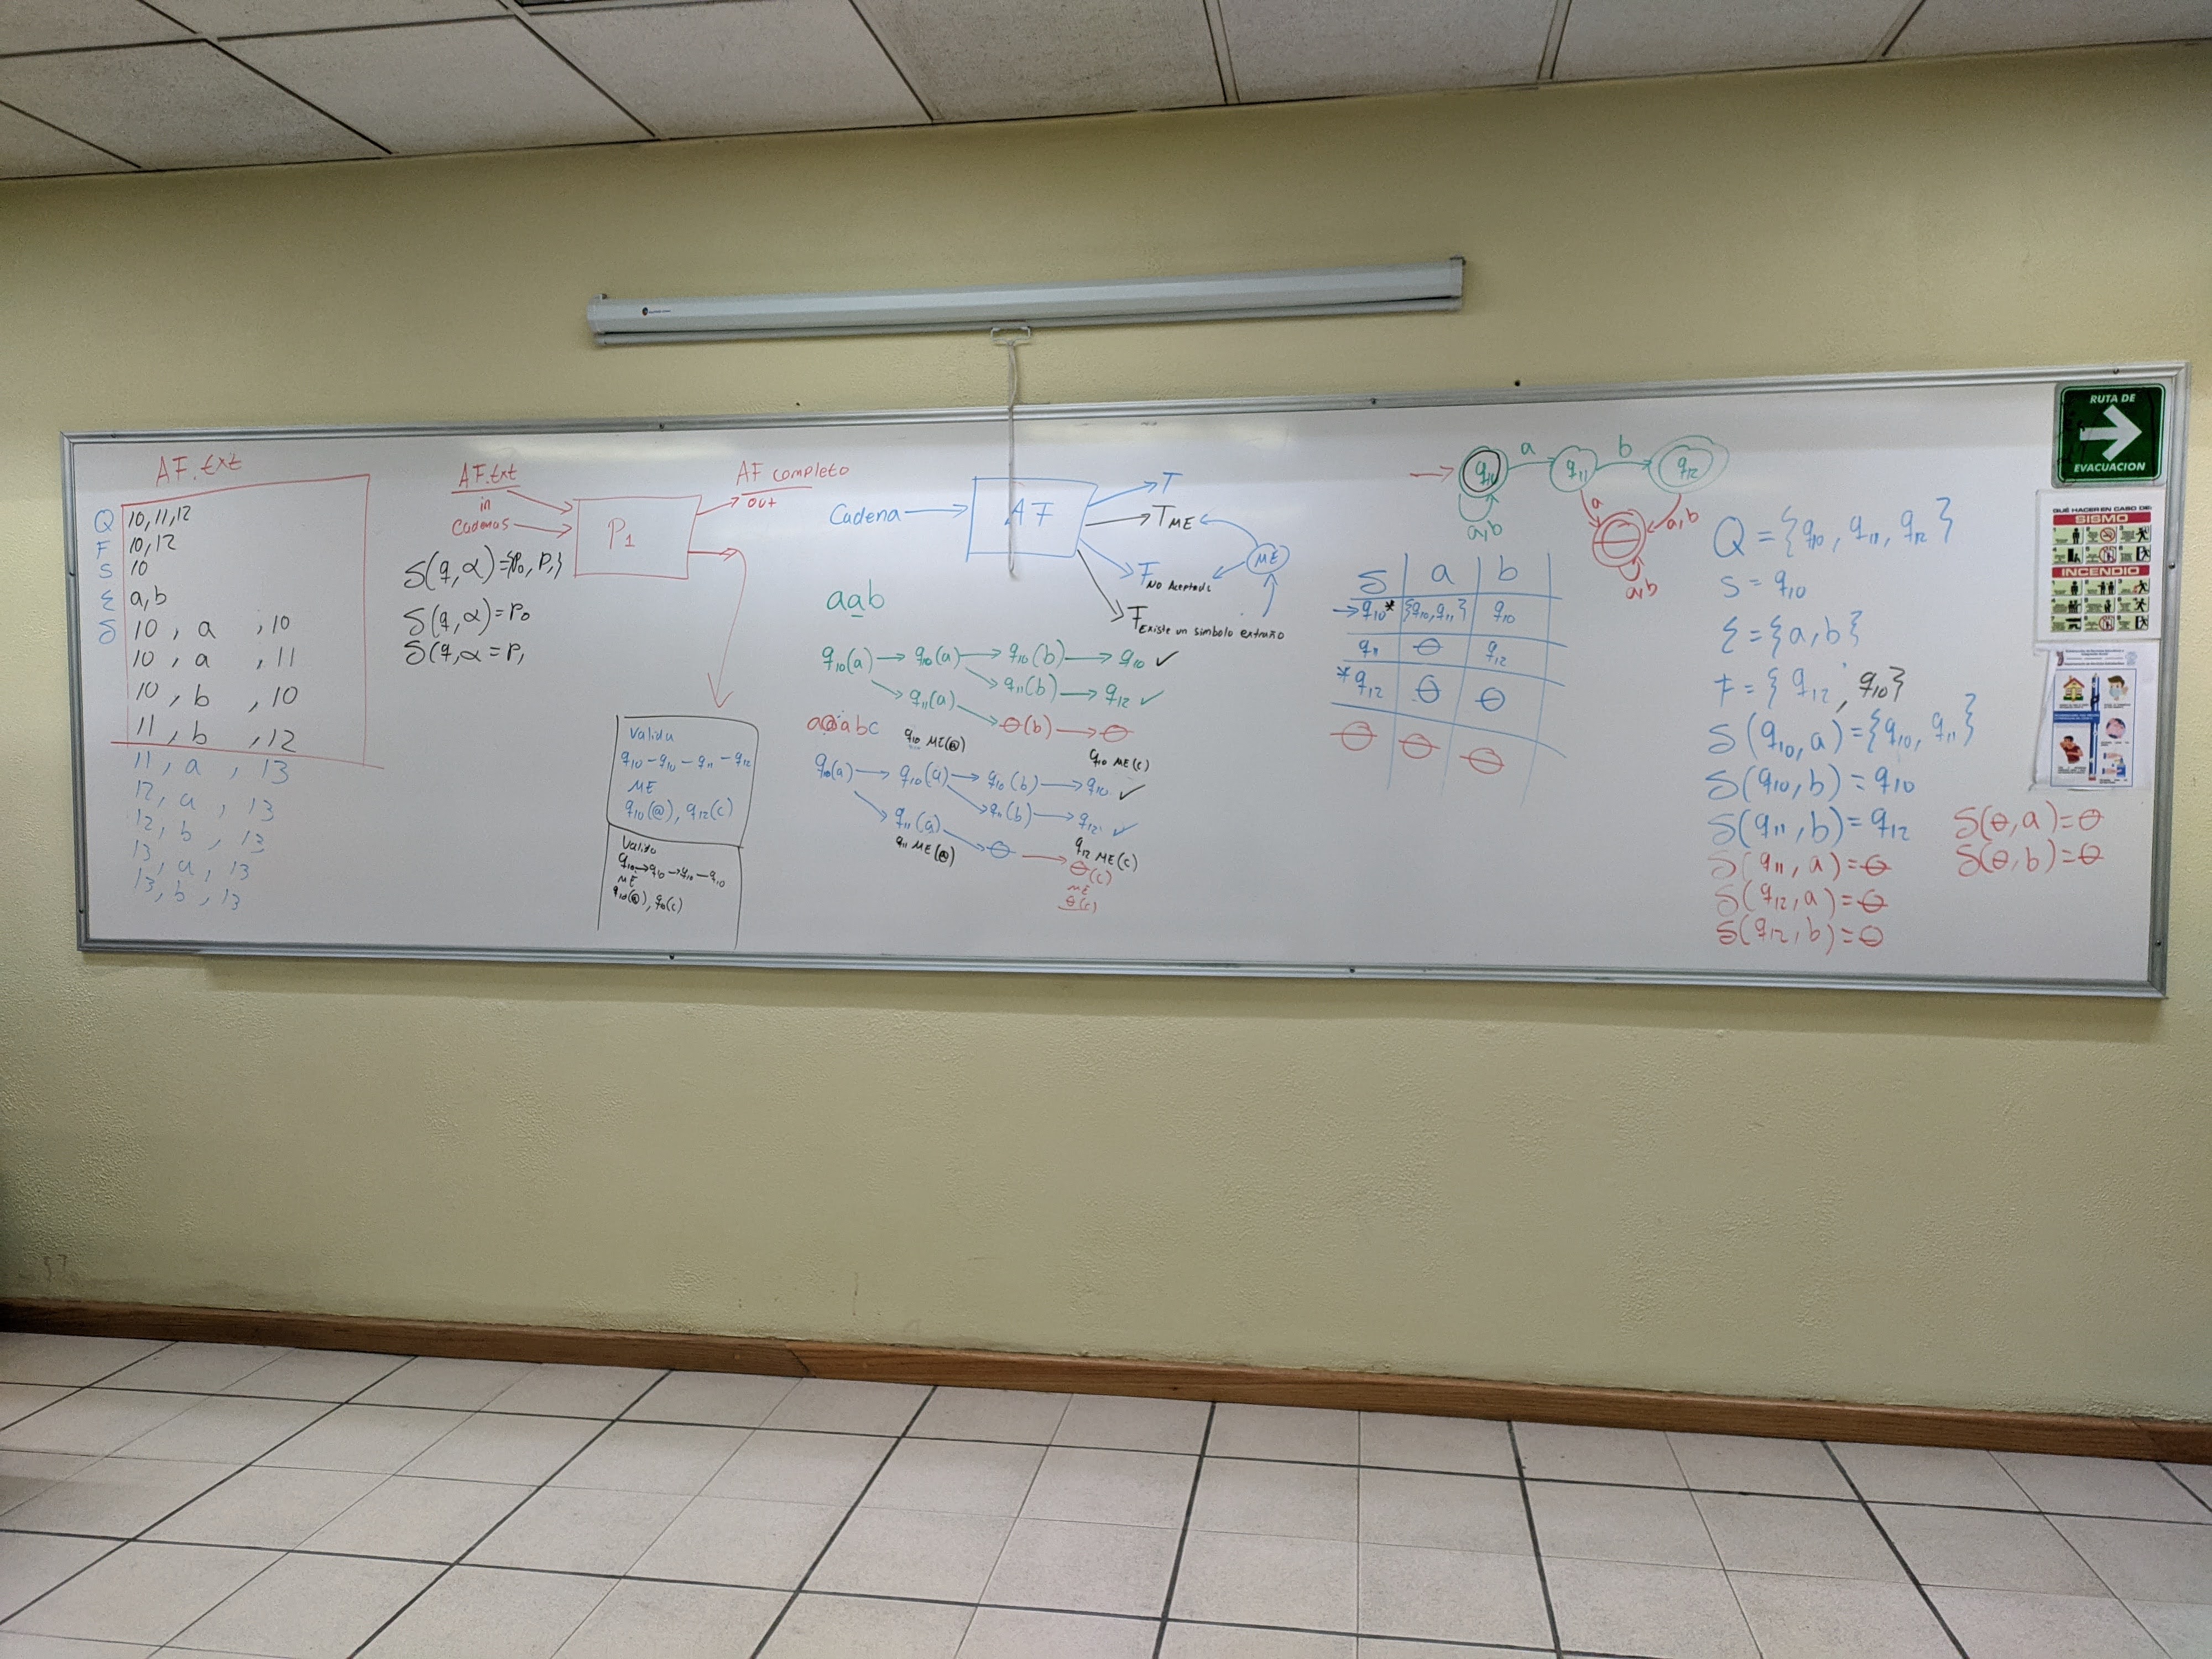 AF.txt
Q 10,11,12
F 10,12
S 10
Σ a,b
δ 10 , a , 10
10 , a , 11
10 , b , 10
11 , b , 12
11 , a , 13
12, a , 13
12, b , 13
13, a , 13
13, b , 13
AF.txt
in
Cadenas
P1
AF completo
out
δ(q,α)={P0, P1}
δ(q,α)=P0
δ(q,α=P1
Valida
q10-q10-q11-q12
ME
q10(@), q12(c)
Valida
ME
q10(@), q10(c)
Cadena
AF
T
T ME
F No Aceptada
F Existe un simbolo extraño
ME
aab
q10(a)→q10(a)→q10(b)→q10 ✓
q11(b)→q12 ✓
q11(a)
θ(b)→θ
a@abc
q10 ME(@)
q10 ME(c)
q10(a)→q10(a)→q10(b)→q10 ✓
q11(b)→q12 ✓
q11(a)→θ→θ(c)
q11 ME(@)
q12 ME(c)
ME
θ(c)
→ q10 a q11 b q12
a,b
a
a,b
θ
a,b
δ a b
→q10* {q10,q11} q10
q11 θ q12
*q12 θ θ
θ θ θ
Q={q10, q11, q12}
S = q10
Σ={a,b}
F={q12, q10}
δ(q10,a)={q10, q11}
δ(q10,b)=q10
δ(q11,b)=q12
δ(q11,a)=θ
δ(q12,a)=θ
δ(q12,b)=θ
δ(θ,a)=θ
δ(θ,b)=θ
RUTA DE
EVACUACION
QUÉ HACER EN CASO DE:
SISMO
INCENDIO